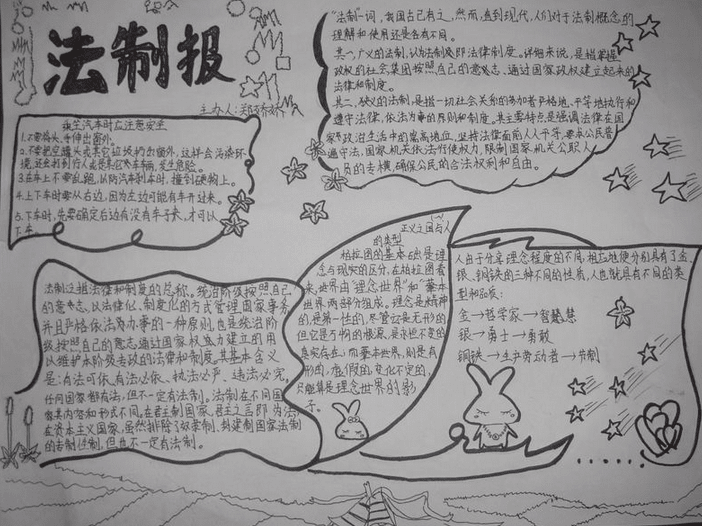 法制报
主办人:郑娇娇
乘坐汽车时应注意安全
1.不要将头、手伸出窗外。
2.不要把空罐头或其它垃圾扔出窗外,这样会污染环
境,还会打到行人或是其它汽车车辆,发生危险。
3.在车上不要乱跑,以防汽车刹车时,撞到硬物上。
4.上下车时要从右边,因为左边可能有车开过来。
5.下车时,先要确定后边有没有车子来,才可以
下车。
"法制"一词,我国古已有之,然而,直到现代,人们对于法制概念的
理解和使用还是各有不同。
其一,广义的法制,认为法制即法律制度。详细来说,是指掌握
政权的社会集团按照自己的意志,通过国家政权建立起来的
法律和制度。
其二,狭义的法制,是指一切社会关系的参加者严格地、平等地执行和
遵守法律,依法办事的原则和制度。其主要特点是强调法律在国
家政治生活中的崇高地位,坚持法律面前人人平等,要求公民普
遍守法,国家机关依法行使权力,限制国家机关公职人
员的专横,确保公民的合法权利和自由。
法制是指法律和制度的总称。统治阶级按照自己
的意志,以法律化、制度化的方式管理国家事务,
并且严格依法办事的一种原则,也是统治阶
级按照自己的意志通过国家权力建立的用
以维护本阶级专政的法律和制度,其基本含义
是:有法可依、有法必依、执法必严、违法必究。
任何国家都有法,但不一定有法制。法制在不同国
家其内容和形式不同,在君主制国家,君主之言即为法,
在资本主义国家,虽然排除了奴隶制、封建制国家法制
的专制性制,但也不一定有法制。
正义之国与人
的类型
柏拉图的基本区别是理
念与现实的区分,在柏拉图看
来,世界由"理念世界"和"基本
世界"两部分组成。理念是精神
的,是第一性的,尽管它是无形的
但它是万物的根源,是永恒不变的
真实存在;而基本世界,则是有
形的,虚假的,变化不定的,
只能算是理念世界的影
子。
人由于分享理念程度的不同,相应地便分别具有了金、
银、铜铁的三种不同的性质,人也就具有不同的类
型和品质:
金→哲学家→智慧
银→勇士→勇敢
铜铁→生产劳动者→节制